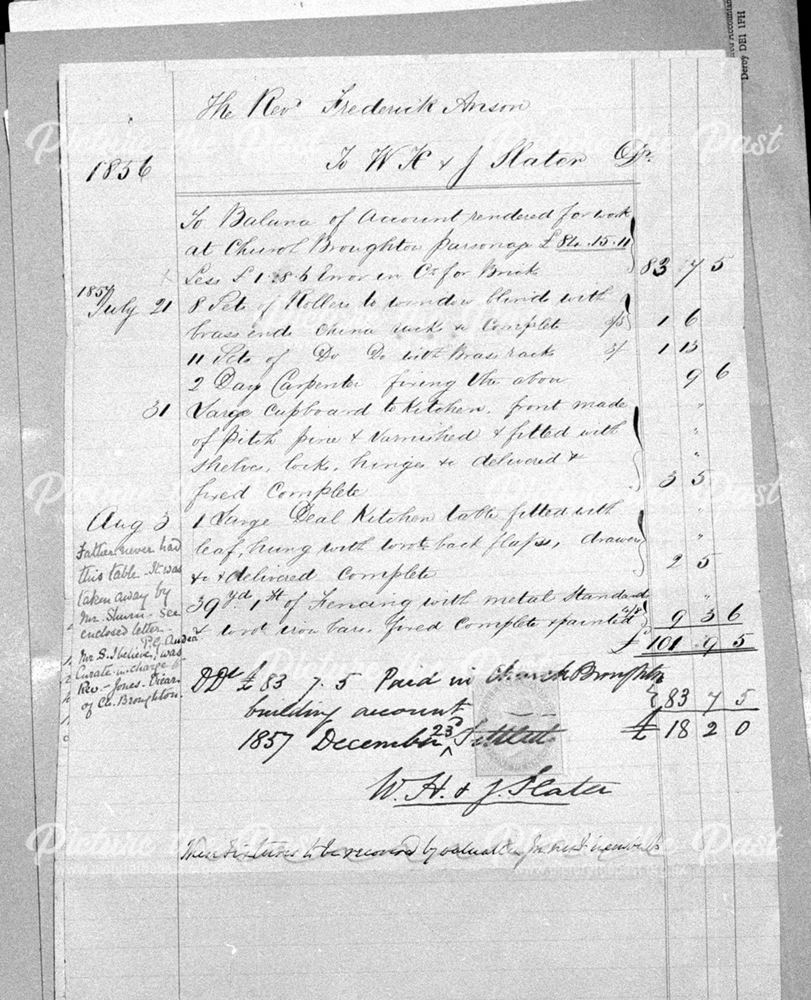 Derby DE1 1PH
The Revd Frederick Anson
1856 To W H & J Slater Dr.
To Balance of Account rendered for work
at Church Broughton parsonage £ 84.15.11
Less £ 1.8.6 Error in Ct for Brick 83 7 5
1857
July 21 8 Sets of Rollers to window blind with
brass ends China rack &c Complete 3/3 1 6
11 Sets of Do Do with Brass racks 3/ 1 13
2 Days Carpenter fixing the above 9 6
31 Large Cupboard to Kitchen, front made
of Pitch pine & Varnished & fitted with
shelves, locks, hinges &c delivered &
fixed Complete 3 5
Aug 3 1 Large Deal Kitchen table fitted with
leaf, hung with wrot back flaps, drawer
&c & delivered Complete 2 5
39 yd 1 ft of Fencing with metal Standards
& wrot iron bars, fixed Complete & painted 9 3 6
£ 101 9 5
Father never had
this table. It was
taken away by
Mr. - See
enclosed letter.
Mr S. I believe, was
Curate in charge to
Rev - Jones - Vicar
of Ch. Broughton.
£ 83 7. 5 Paid in Church Broughton
building account 83 7 5
1857 December 23d Settled £ 18 2 0
W. H. & J. Slater
These fixtures to be recovered by valuation
Picture the Past